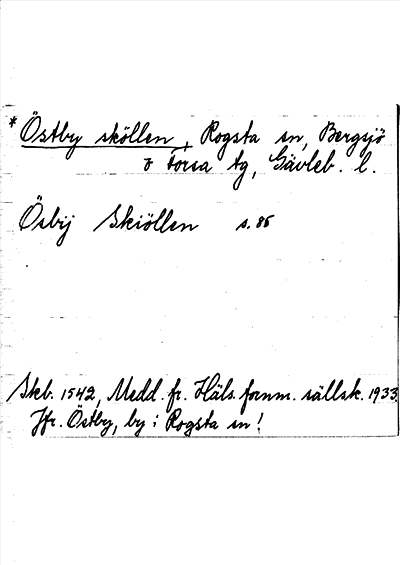 * Östby sköllen, Rogsta sn, Bergsjö
o Forsa tg, Gävleb. l.
Ösbij Skiöllen s. 86
Skb. 1542, Medd. fr. Häls. fornm. sällsk. 1933.
Jfr. Östby, by i Rogsta sn!